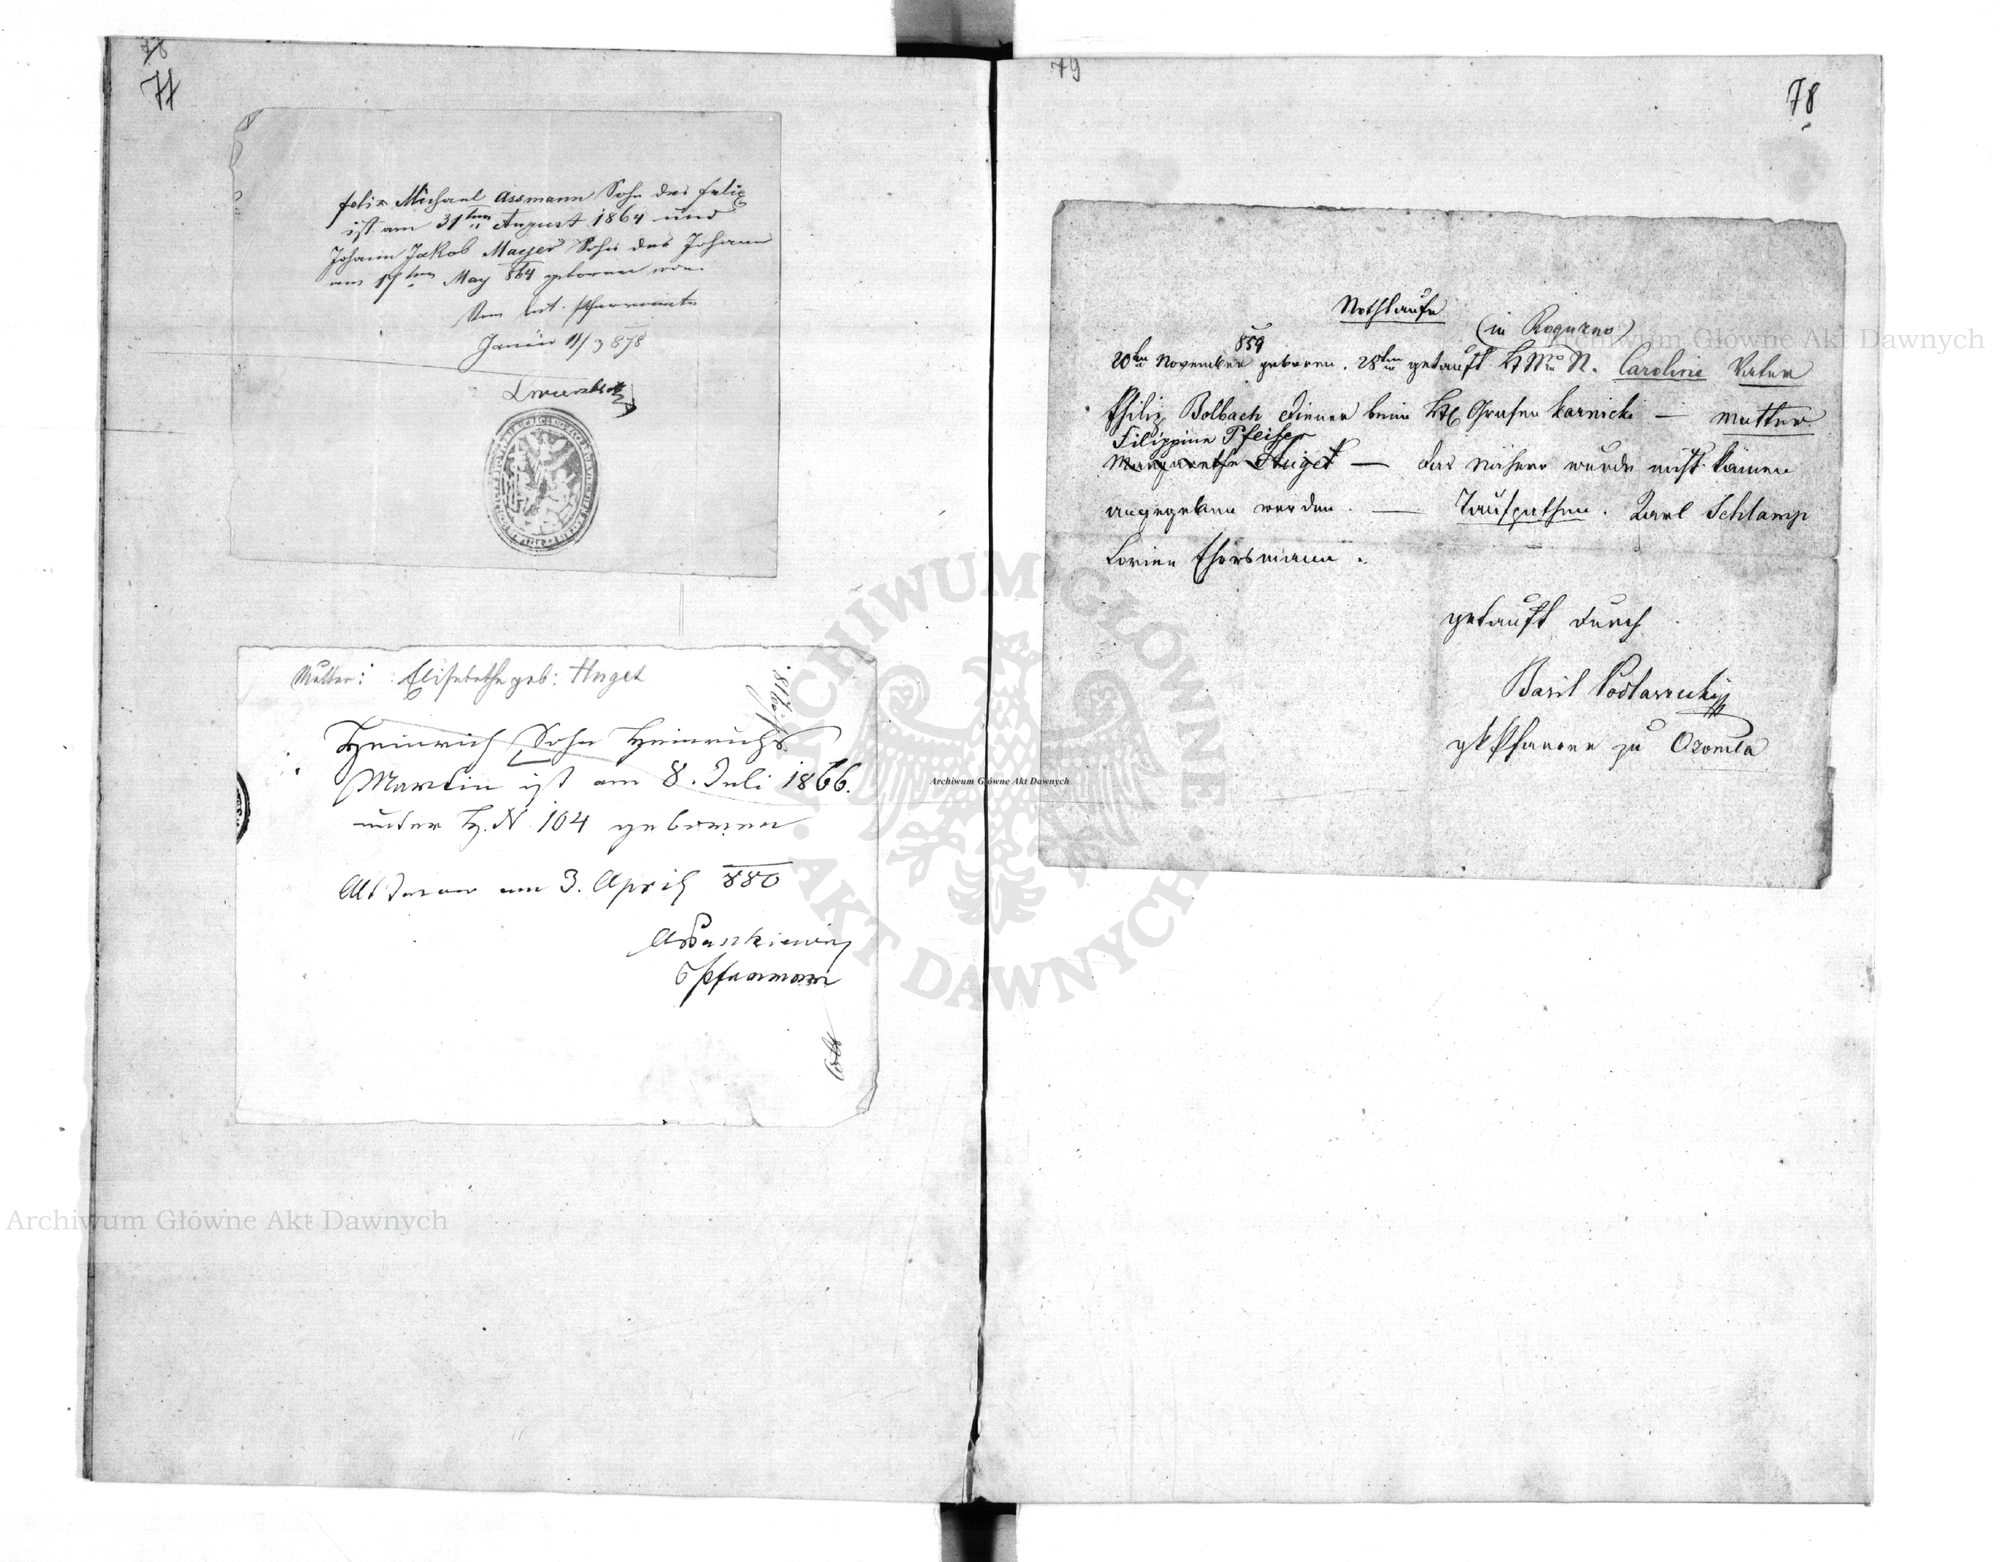 78
77
Felix Michael Assmann Sohn des Felix
ist am 31ten August 1864 und
Johann Jakob Mayer Sohn des Johann
am 17ten May 864 geboren worden
Vom lat. Pfarramte
Janów 11/3 878
Mutter: Elisabethe geb: Huget
Heinrich Sohn Heinrichs
Martin ist am 8. Juli 1866.
unter H. N. 104 geboren
Alt Jazow am 3. April 880
Pfarrer
79
78
Nothtaufe
(in Rogurno)
859
20ten November geboren. 28ten getauft H Nro N. Caroline Vater
Philip Bolbach Diener beim H Grafen Karnicki — Mutter
Filippine Pfeifer
Margarethe Huget — das nähere wurde nicht können
angegeben werden. — Taufpathen. Karl Schlamp
Ehresmann.
getauft durch
Basil Podlarzecki
gk Pfarrer zu Ozomla
Archiwum Główne Akt Dawnych
Archiwum Główne Akt Dawnych
Archiwum Główne Akt Dawnych
ARCHIWUM GŁÓWNE · AKT DAWNYCH ·